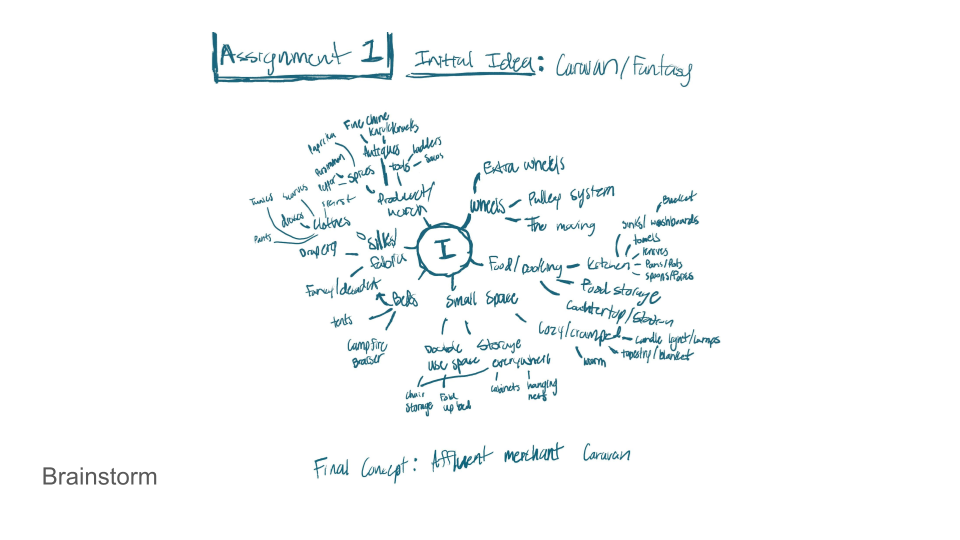 Assignment 1
Initial Idea: Caravan/Fantasy
Fine China
Knick Knacks
Antiques
ladders
tools
Paprika
Spices
Product/
Extra wheels
wheels
Pulley system
Bucket
Sinks/washboards
towels
knives
Pans/Pots
Spoons/Forks
Kitchen
Food/cooking
Food storage
Countertop/
Tunics
Scarves
Pants
Clothes
Drapery
Silks/
fabric
Beds
tents
Campfire
I
Small Space
Cozy/cramped
candle light/lamps
tapestry/blanket
warm
Double
use space
Storage
everywhere
Chair
Storage
Fold
up bed
cabinets
hanging
nets
Final Concept: Affluent merchant Caravan
Brainstorm